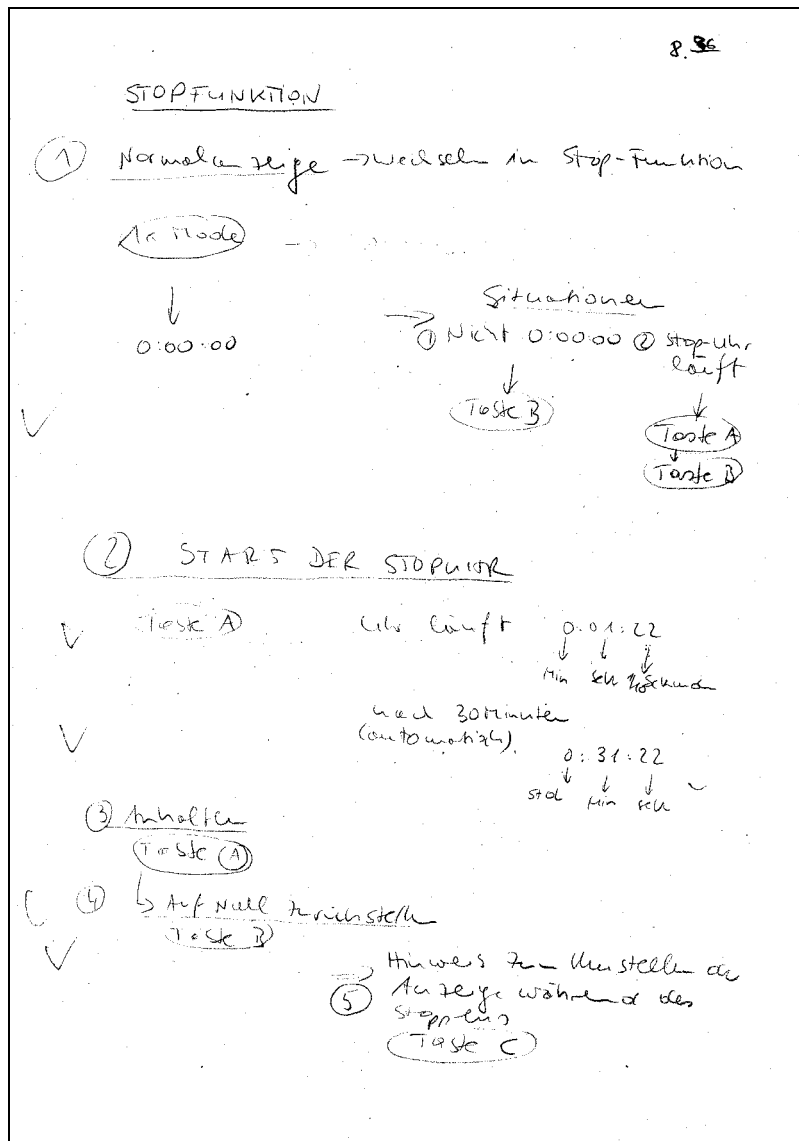 8.36
STOPFUNKTION
① Normalanzeige → wechseln in Stop-Funktion
1x Mode
↓
0:00:00
→ Situationen
① Nicht 0:00:00 ② Stop-Uhr
läuft
↓
Taste B
↓
Taste A
↓
Taste B
② START DER STOPUHR
Taste A Uhr läuft 0:01:22
↓ ↓ ↓
Min Sek
nach 30 Minuten
(automatisch)
0:31:22
↓ ↓ ↓
Std Min Sek
③ Anhalten
Taste A
④ ↳ Auf Null zurückstellen
Taste B
⇒ Hinweis zum Umstellen der
⑤ Anzeige während des
Stoppens
Taste C